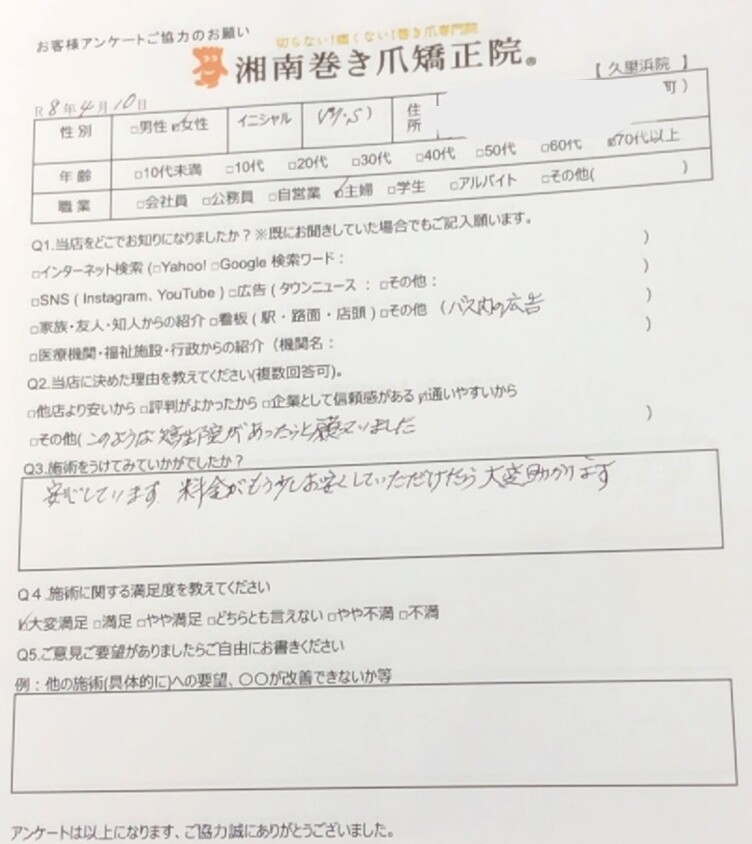 お客様アンケートご協力のお願い
切らない!痛くない!巻き爪専門院
湘南巻き爪矯正院®
【 久里浜院 】
R 8年4月10日
性別 □男性 ☑女性 イニシャル ( ・S ) 住所 町 )
年齢 □10代未満 □10代 □20代 □30代 □40代 □50代 □60代 ☑70代以上
職業 □会社員 □公務員 □自営業 ☑主婦 □学生 □アルバイト □その他( )
Q1.当店をどこでお知りになりましたか?※既にお聞きしていた場合でもご記入願います。
□インターネット検索 (□Yahoo! □Google 検索ワード: )
□SNS ( Instagram、YouTube ) □広告 ( タウンニュース : □その他: )
□家族・友人・知人からの紹介 □看板 ( 駅・路面・店頭 ) □その他 (バス内の広告 )
□医療機関・福祉施設・行政からの紹介 (機関名: )
Q2.当店に決めた理由を教えてください(複数回答可)。
□他店より安いから □評判がよかったから □企業として信頼感がある ☑通いやすいから
□その他(このような矯正院があったらと願っていました )
Q3.施術をうけてみていかがでしたか?
安心しています 料金がもう少しお安くしていただけたら大変助かります
Q4.施術に関する満足度を教えてください
☑大変満足 □満足 □やや満足 □どちらとも言えない □やや不満 □不満
Q5.ご意見ご要望がありましたらご自由にお書きください
例:他の施術(具体的に)への要望、〇〇が改善できないか等
アンケートは以上になります、ご協力誠にありがとうございました。